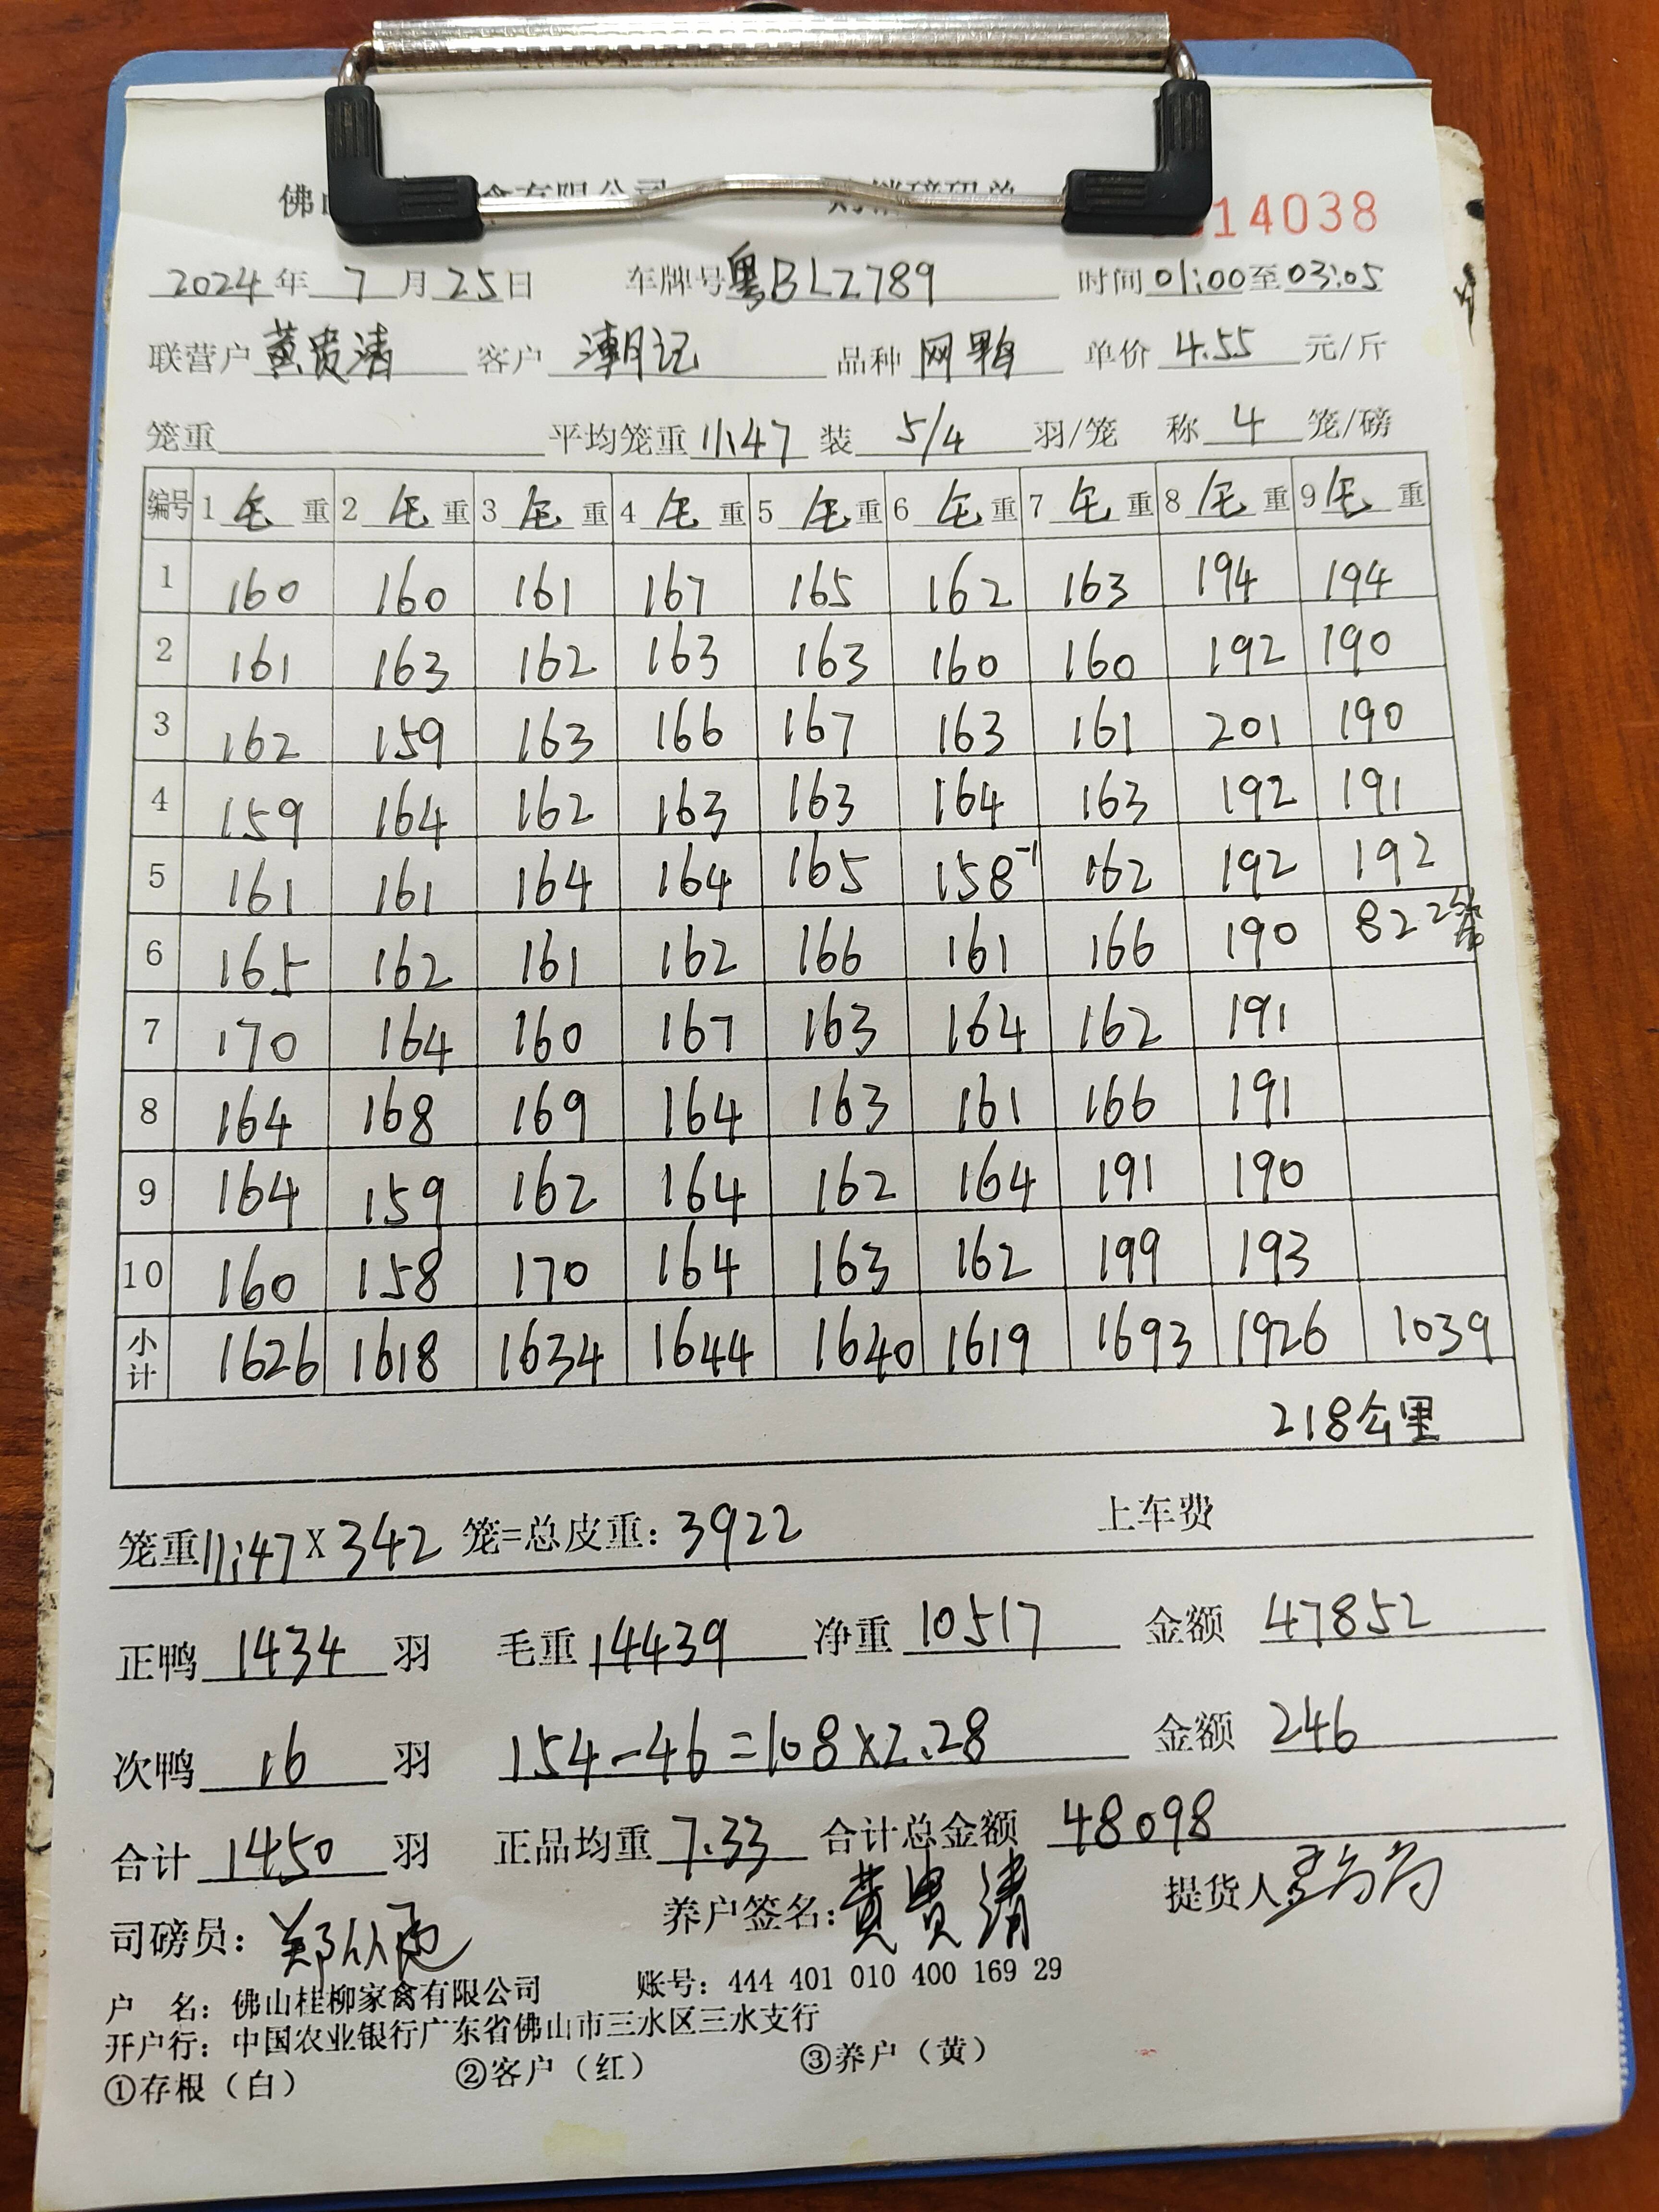 佛山 禽有限公司 购销磅码单 14038
2024年 7月25日 车牌号粤BLZ789 时间01:00至03:05
联营户黄贵清 客户 潮记 品种 网鸭 单价 4.55 元/斤
笼重 平均笼重11.47 装 5/4 羽/笼 称 4 笼/磅
编号 1毛重 2毛重 3毛重 4毛重 5毛重 6毛重 7毛重 8毛重 9毛重
1 160 160 161 167 165 162 163 194 194
2 161 163 162 163 163 160 160 192 190
3 162 159 163 166 167 163 161 201 190
4 159 164 162 163 163 164 163 192 191
5 161 161 164 164 165 158-1 162 192 192
6 165 162 161 162 166 161 166 190 82 2笼
7 170 164 160 167 163 164 162 191
8 164 168 169 164 163 161 166 191
9 164 159 162 164 162 164 191 190
10 160 158 170 164 163 162 199 193
小计 1626 1618 1634 1644 1640 1619 1693 1926 1039
218公里
笼重11.47X342 笼=总皮重:3922 上车费
正鸭 1434 羽 毛重14439 净重10517 金额 47852
次鸭 16 羽 154-46=108×2.28 金额 246
合计 1450 羽 正品均重 7.33 合计总金额 48098
司磅员: 养户签名:黄贵清 提货人
户 名:佛山桂柳家禽有限公司 账号:444 401 010 400 169 29
开户行:中国农业银行广东省佛山市三水区三水支行
①存根(白) ②客户(红) ③养户(黄)